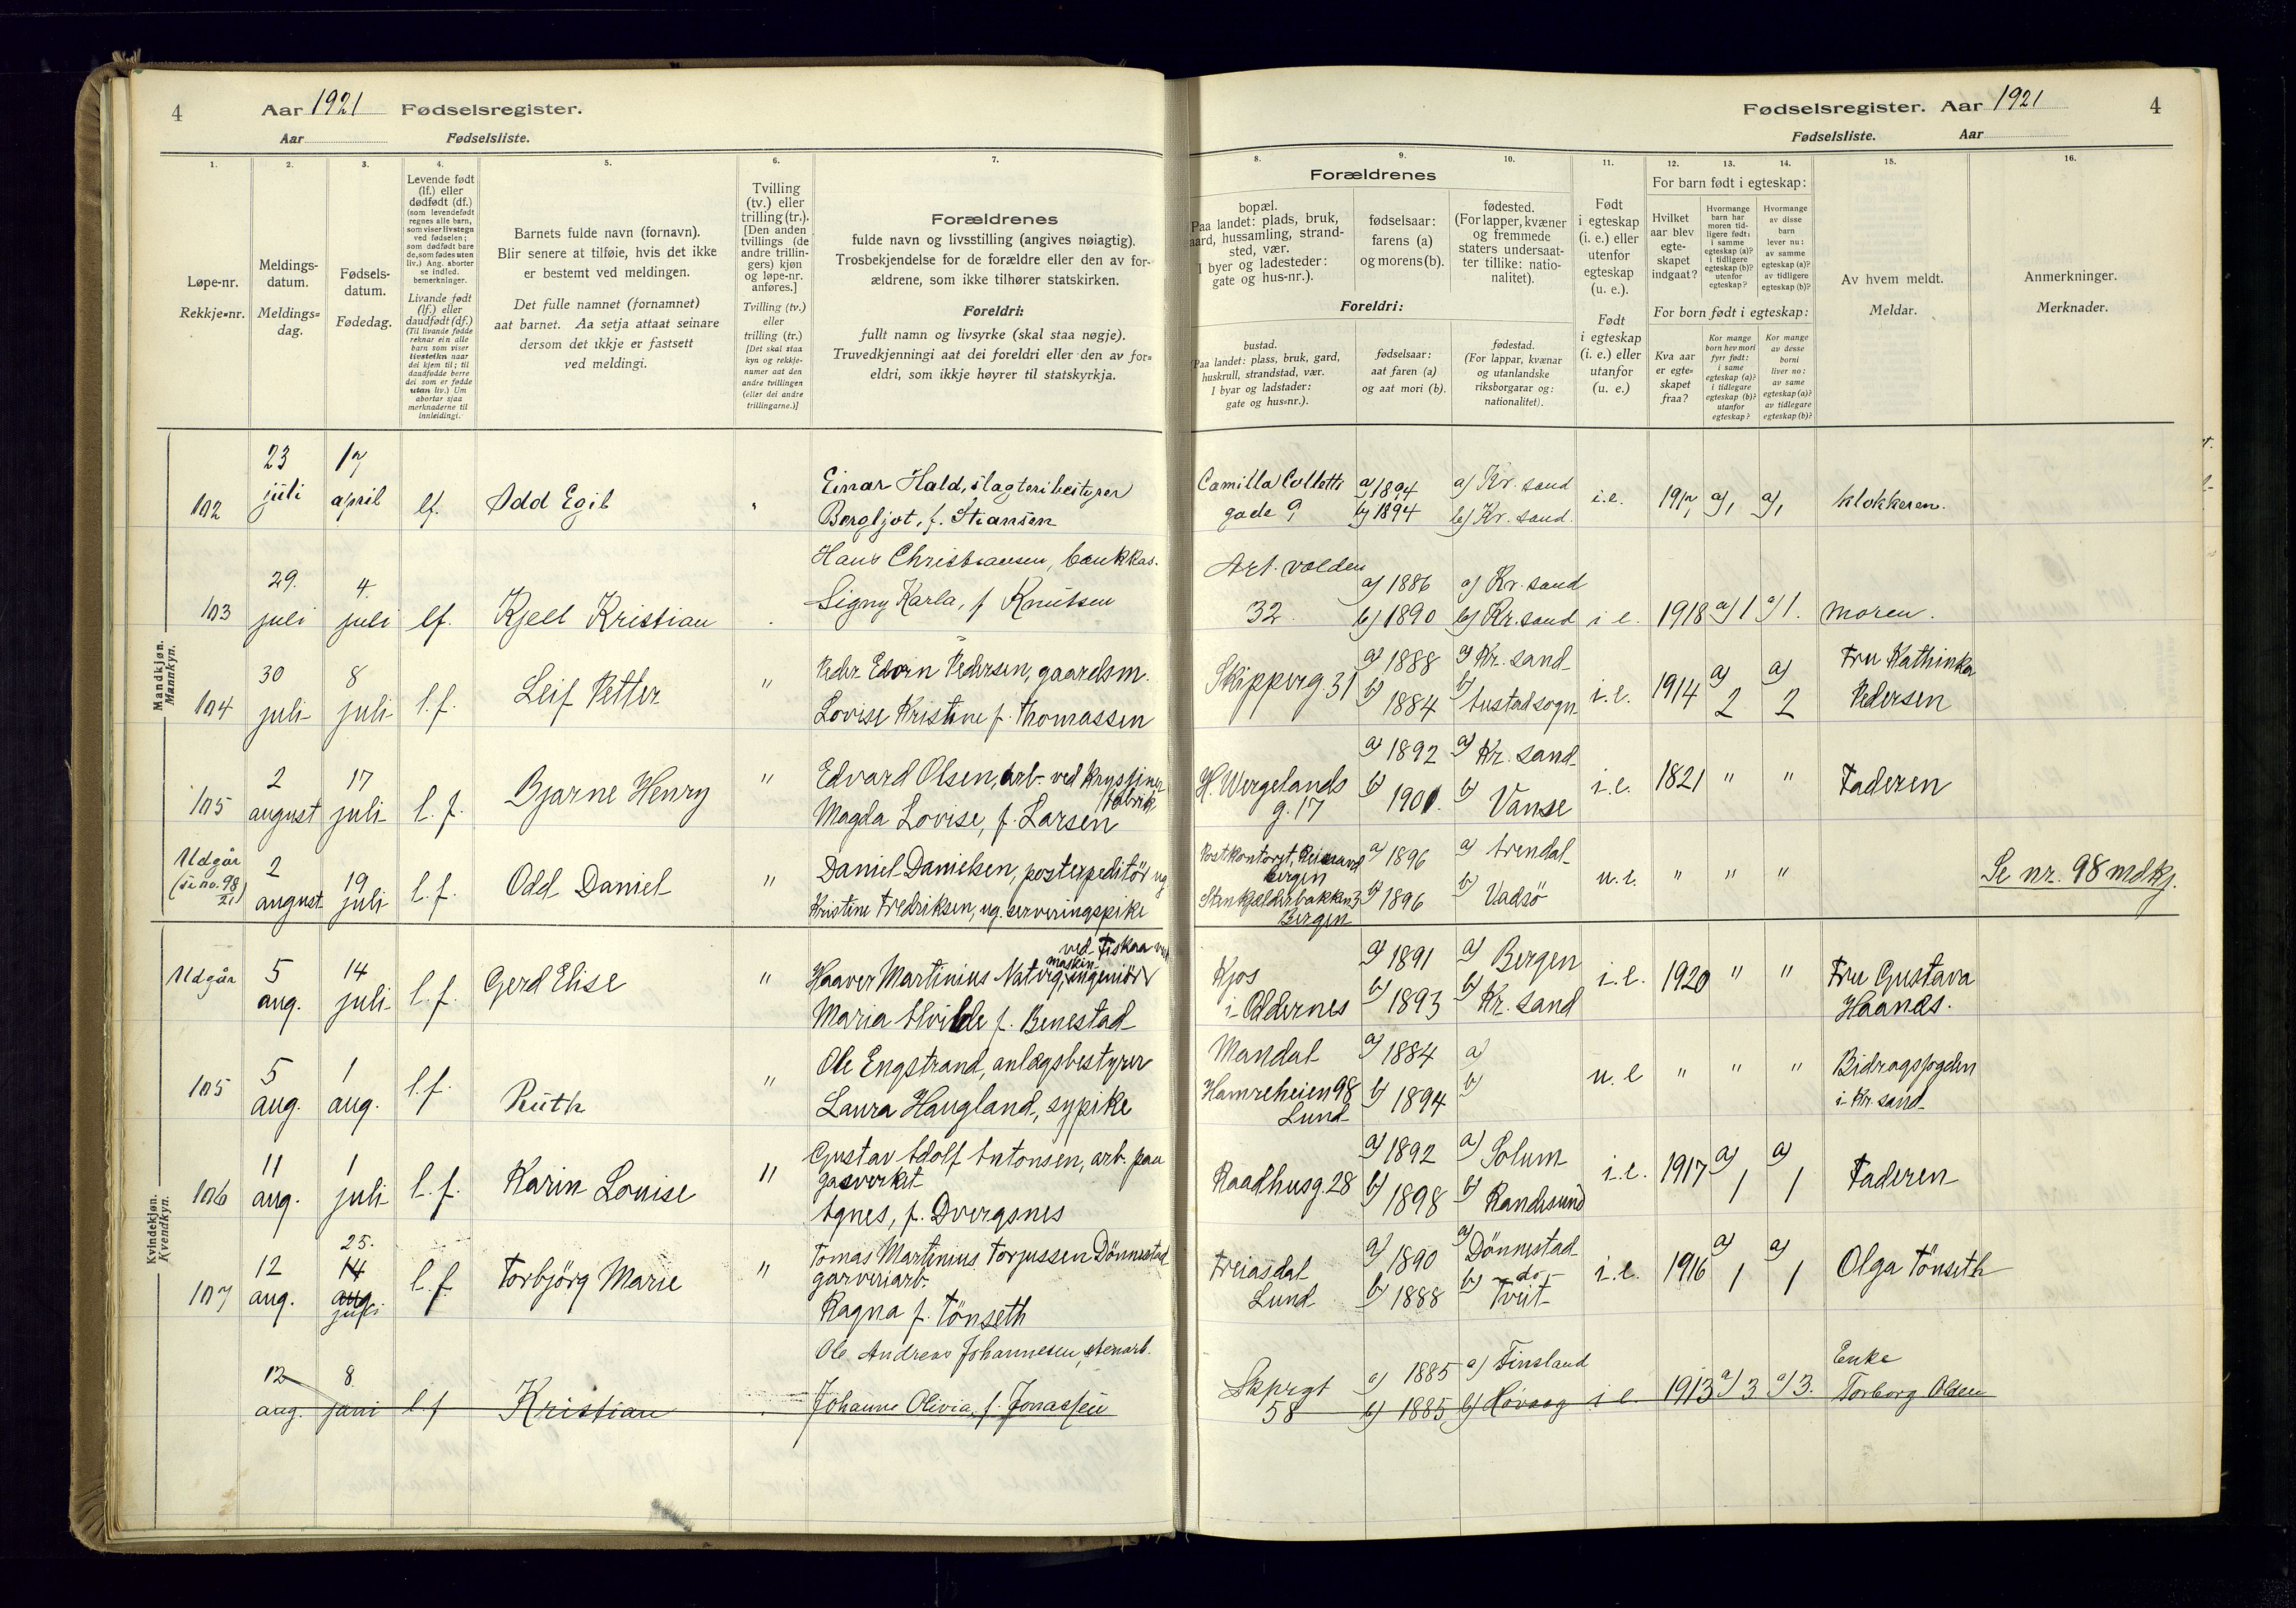 4 Aar 1921 Fødselsregister.
Aar Fødselsliste.
Fødselsregister. Aar 1921 4
Fødselsliste. Aar
1. 2. 3. 4. 5. 6. 7.
Løpe-nr.
Rekkje=nr.
Meldings-
datum.
Meldings=
dag.
Fødsels-
datum.
Fødedag.
Levende født
(lf.) eller
dødfødt (df.)
(som levendefødt
regnes alle barn,
som viser livstegn
ved fødselen;
som dødfødt bare
de, som fødes uten
liv.) Ang. aborter
se indled.
bemerkninger.
Livande født
(lf.) eller
daudfødt (df.)
(Til livande fødde
reknar ein alle
barn som viser
livsteikn naar
dei kjem til; til
daudfødde berre
dei som er fødde
utan liv.) Um
abortar sjaa
merknaderne til
innleidingi.
Barnets fulde navn (fornavn).
Blir senere at tilføie, hvis det ikke
er bestemt ved meldingen.
Det fulle namnet (fornamnet)
aat barnet. Aa setja attaat seinare
dersom det ikkje er fastsett
ved meldingi.
Tvilling
(tv.) eller
trilling (tr.).
[Den anden
tvillings (de
andre trillin-
gers) kjøn
og løpe-nr.
anføres.]
Tvilling (tv.)
eller
trilling (tr.)
[Det skal staa
kyn og rekkje-
numer aat den
andre tvillingen
(eller dei andre
trillingarne.)]
Forældrenes
fulde navn og livsstilling (angives nøiagtig).
Trosbekjendelse for de forældre eller den av for-
ældrene, som ikke tilhører statskirken.
Foreldri:
fullt namn og livsyrke (skal staa nøgje).
Truvedkjenningi aat dei foreldri eller den av for=
eldri, som ikkje høyrer til statskyrkja.
8. 9. 10. 11. 12. 13. 14. 15. 16.
Forældrenes
bopæl.
Paa landet: plads, bruk,
gaard, hussamling, strand-
sted, vær.
I byer og ladesteder:
gate og hus-nr.).
fødselsaar:
farens (a)
og morens (b).
fødested.
(For lapper, kvæner
og fremmede
staters undersaat-
ter tillike: natio-
nalitet).
Foreldri:
bustad.
Paa landet: plass, bruk, gard,
huskrull, strandstad, vær.
I byar og ladstader:
gate og hus=nr.).
fødselsaar:
aat faren (a)
og aat mori (b).
fødestad.
(For lappar, kvænar
og utanlandske
riksborgarar og:
nationalitet).
Født
i egteskap
(i. e.) eller
utenfor
egteskap
(u. e.).
Født
i egteskap
(i. e.) eller
utanfor
(u. e.)
For barn født i egteskap:
Hvilket
aar blev
egte-
skapet
indgaat?
Hvormange
barn har
moren tid-
ligere født:
i samme
egteskap (a)?
i tidligere
egteskap (b)?
utenfor
egteskap?
Hvormange
av disse
barn
lever nu:
av samme
egteskap (a)?
av tidligere
egteskap (b)?
For born født i egteskap:
Kva aar
er egte-
skapet
fraa?
Kor mange
born hev mori
fyrr født:
i same
egteskap (a)?
i tidlegare
egteskap (b)?
utanfor
egteskap?
Kor mange
av desse
borni
liver no:
av same
egteskap (a)?
av tidlegare
egteskap (b)?
Av hvem meldt.
Meldar.
Anmerkninger.
Merknader.
Mandkjøn.
Mannkyn.
102 23 juli 17 april lf. Odd Egil " Einar Hald, slagteribestyrer
Bergljot, f. Stiansen
Camilla Colletts a) 1894 a) Kr. sand i.e. 1917 a) 1 a) 1 klokkeren.
gade 9 b) 1894 b) Kr. sand.
103 29. juli 4. juli lf. Kjell Kristian Hans Christiansen, bankkas.
Signy Karla, f Knutsen
Art. volden a) 1886 a) Kr. sand
32 b) 1890 b) Kr. sand i e. 1918 a) 1 a) 1. moren.
104 30 juli 8 juli l.f. Leif Petter " Peder Edvin Pedersen, gaardsm.
Lovise Kristine f. Thomassen
Skipperg 31 a) 1888 a) Kr. sand i.e. 1914 a) 2 a) 2 Fru Kathinka
b) 1884 b) Austad sogn Pedersen
105 2 august 17 juli l.f. Bjarne Henry " Edvard Olsen, arb. ved Krystiner
fabrik
Magda Lovise, f. Larsen
H. Wergelands a) 1892 a) Kr. sand i.e. 1821 " " Faderen
g. 17 b) 1901. b) Vanse
Udgår
(se no. 98
21) 2 august 19 juli l.f. Odd Daniel " Daniel Danielsen, postexpeditör ug
Kristine Fredriksen, ug. serveringspike
Postkontoret, a) 1896 a) Arendal u.e. " " " Se nr. 98 mdkj.
Bergen
Stenkjelderbakken 3 b) 1896 b) Vadsö
Bergen
Kvindekjøn.
Kvendkyn.
Udgår 5 aug. 14 juli l.f. Gerd Elise " ved Fiskaa
maskin
Haaver Martinius Natvig, ingeniör
Maria Alvilde f. Benestad
Kjos a) 1891 a) Bergen i.e. 1920 " " Fru Gustava
i Oddernes b) 1893 b) Kr. sand Haanes.
105 5 aug. 1 aug. l.f. Ruth " Ole Engstrand, anlægsbestyrer
Laura Haugland, sypike
Mandal a) 1884 a) u.e " " " Bidragsfogden
Hamreheien 98 b) 1894 b) i Kr. sand
Lund
106 11 aug. 1 juli l.f. Karin Louise " Gustav Adolf Antonsen, arb. paa
gasverket
Agnes, f. Dvergsnes
Raadhusg. 28 a) 1892 a) Solum i.e. 1917 a) 1 a) 1 Faderen
b) 1898 b) Randesund
107 12 aug. 25. 14 aug. juli l.f Torbjörg Marie " Tomas Martinius Torjussen Dönnestad
garveriarb.
Ragna f. Tönseth
Freiasdal a) 1890 a) Dönnestad i.e. 1916 a) 1 a) 1 Olga Tönseth
Lund b) 1888 b) - do -
Tveit
12 aug. 8 juni l.f Kristian Ole Andreas Johannesen, stenarb.
Johanne Olivia, f. Jonassen
Skprgt a) 1885 a) Finsland Enke
58 b) 1885 b) Hövaag i e. 1913 a) 3 a) 3. Torborg Olsen